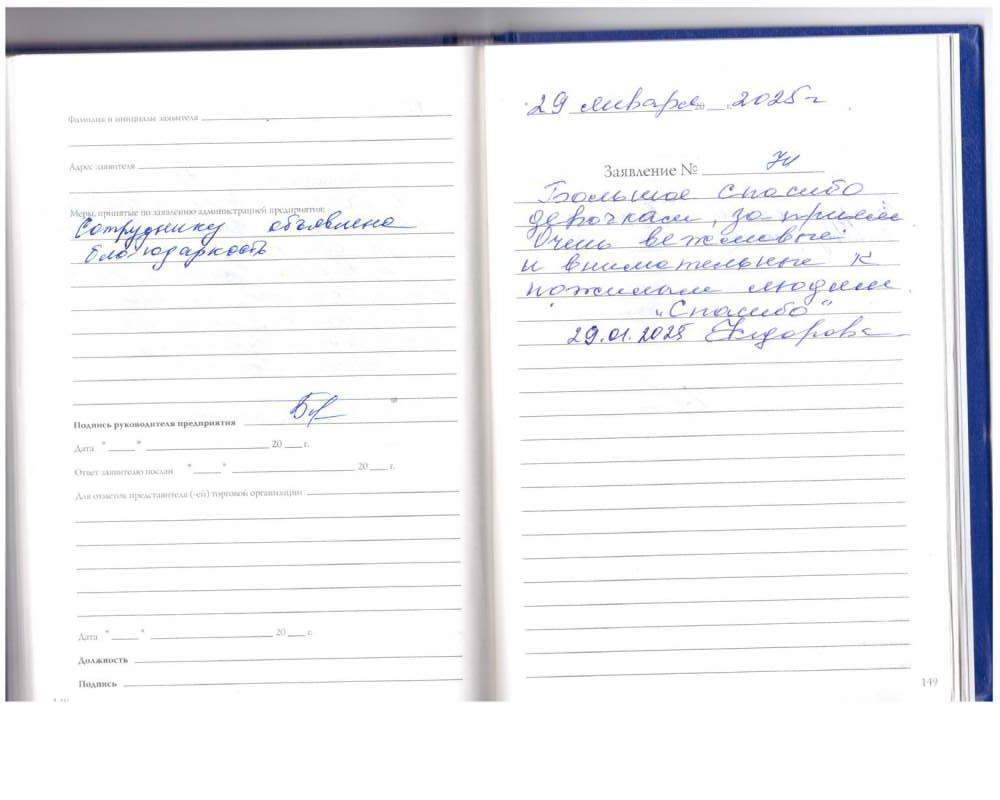 Фамилия и инициалы заявителя
Адрес заявителя
Меры, принятые по заявлению администрацией предприятия:
Сотруднику объявлена
благодарность
Подпись руководителя предприятия
Дата "____" ____ 20 ___ г.
Ответ заявителю послан "____" ____ 20 ___ г.
Для отметок представителя (-ей) торговой организации
Дата "____" ____ 20 ___ г.
Должность
Подпись
29 января 20 __ г. 2025 г
Заявление №
Большое спасибо
девочкам, за приём
Очень вежливые
и внимательные к
пожилым людям.
"Спасибо"
29.01.2025
149